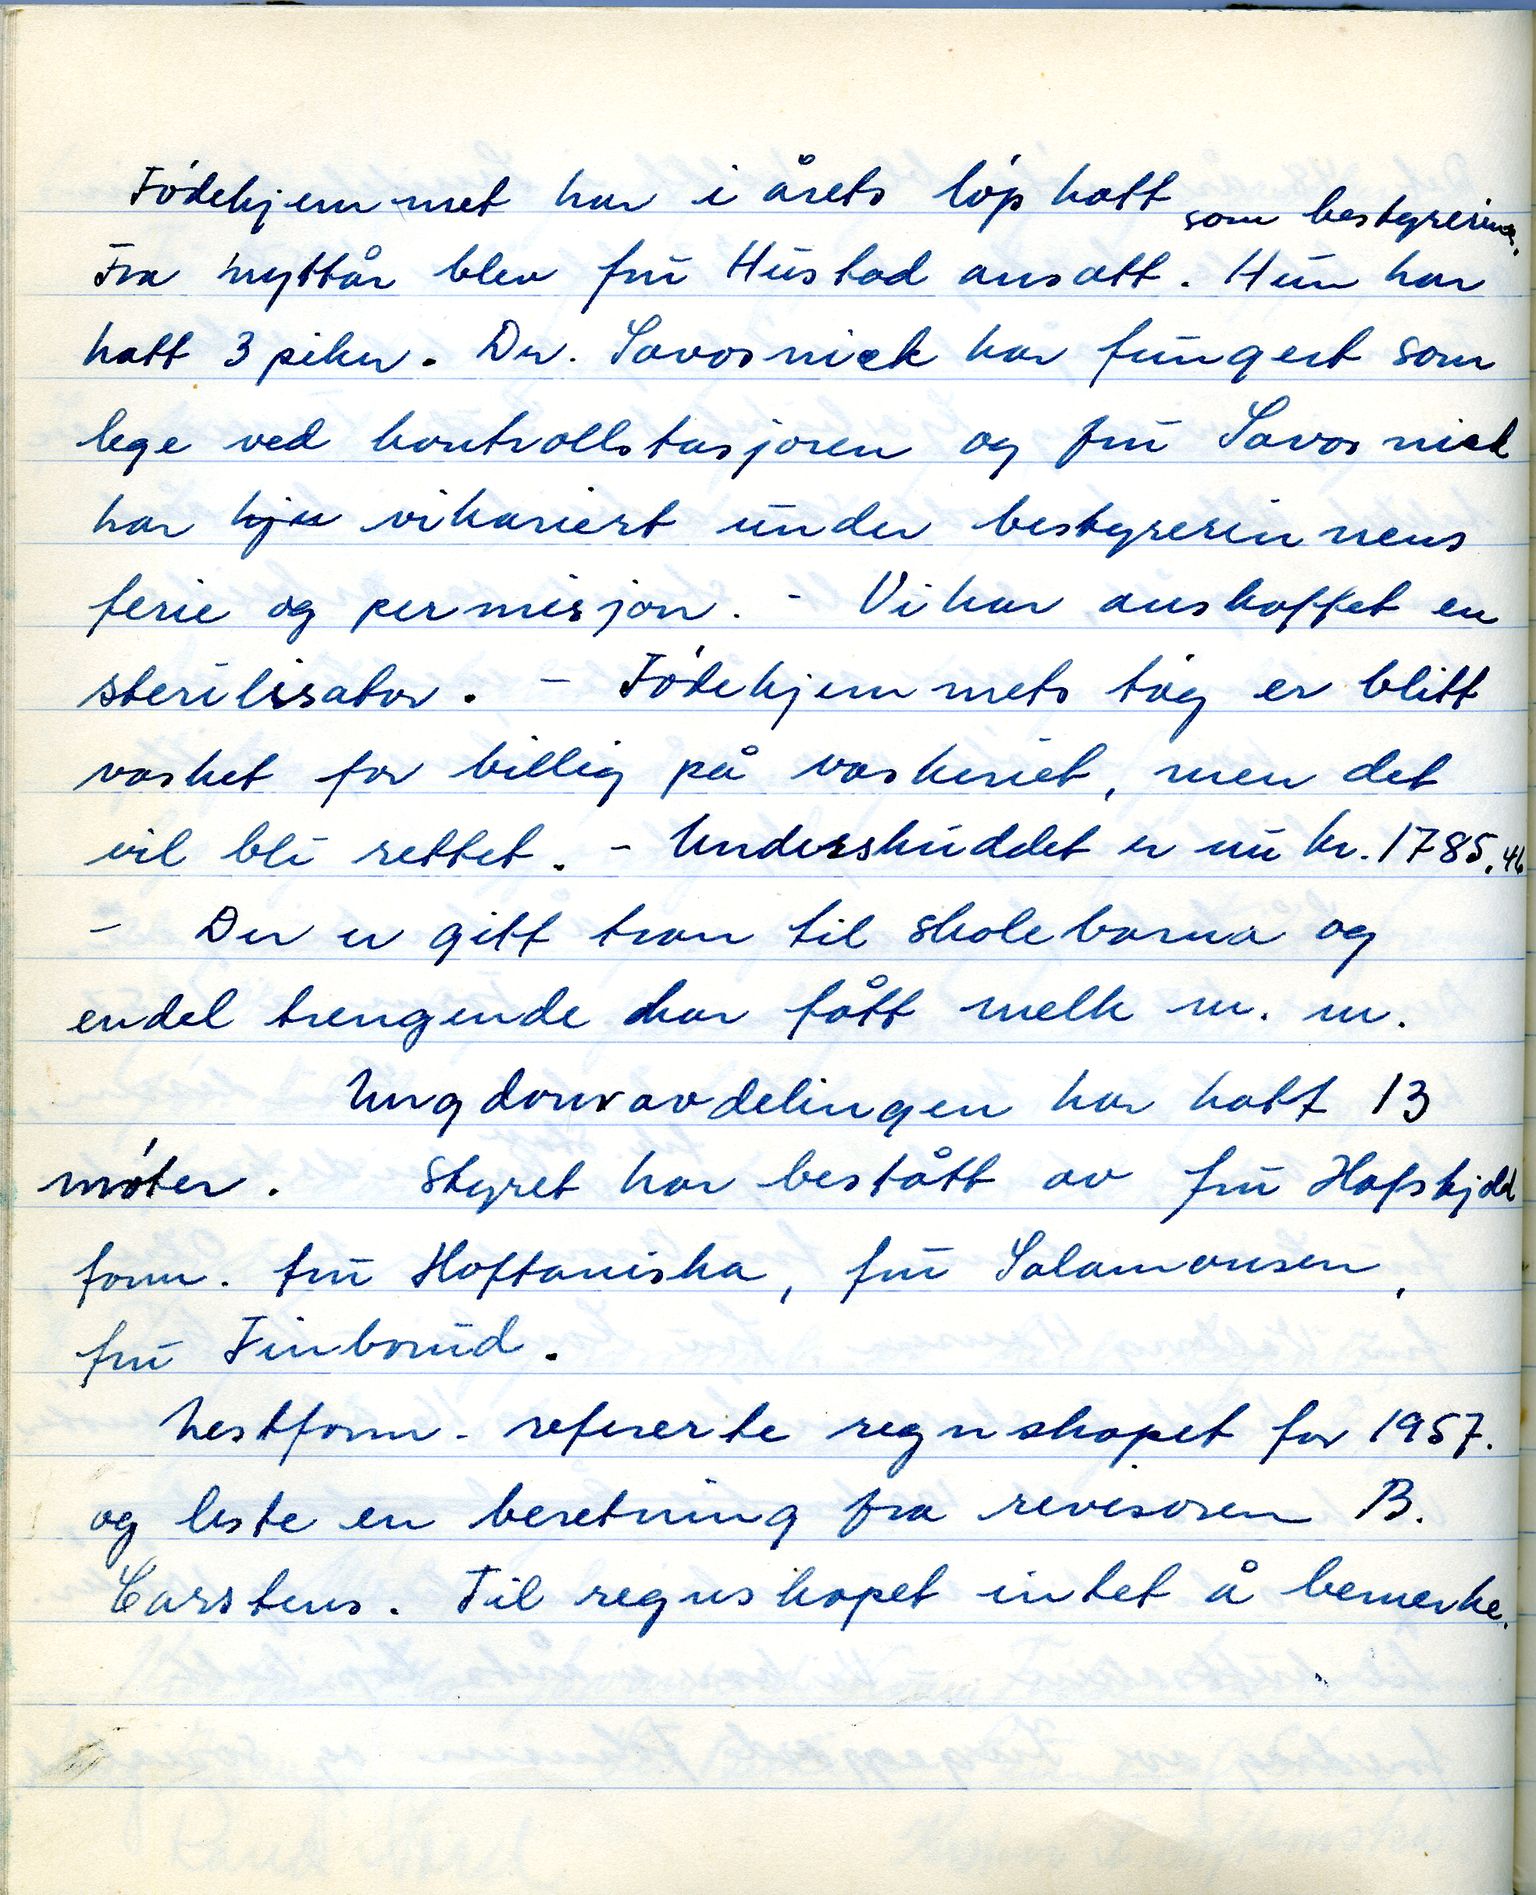 Fødehjemmet har i årets løp hatt som bestyrerinne.
Fra nyttår blev frü Hüstad ansatt. Hün har
hatt 3 piker. Dr. Savosnick har füngert som
lege ved kontrollstasjonen og frü Savosnick
har vikariert ünder bestyrerinnens
ferie og permisjon. - Vi har anskaffet en
sterilisator. - Fødehjemmets tøy er blitt
vasket for billig på vaskeriet, men det
vil bli rettet. - Underskuddet er nü kr. 1785.46
- Der er gitt tran til skolebarna og
endel trengende har fått melk m. m.
Ungdomsavdelingen har hatt 13
møter. Styret har bestått av frü Hafskjold
form. frü Hoftaniska, frü Salamonsen,
frü Finborüd.
Nestform. refererte regnskapet for 1957.
og leste en beretning fra revisoren B.
Carstens. Til regnskapet intet å bemerke.